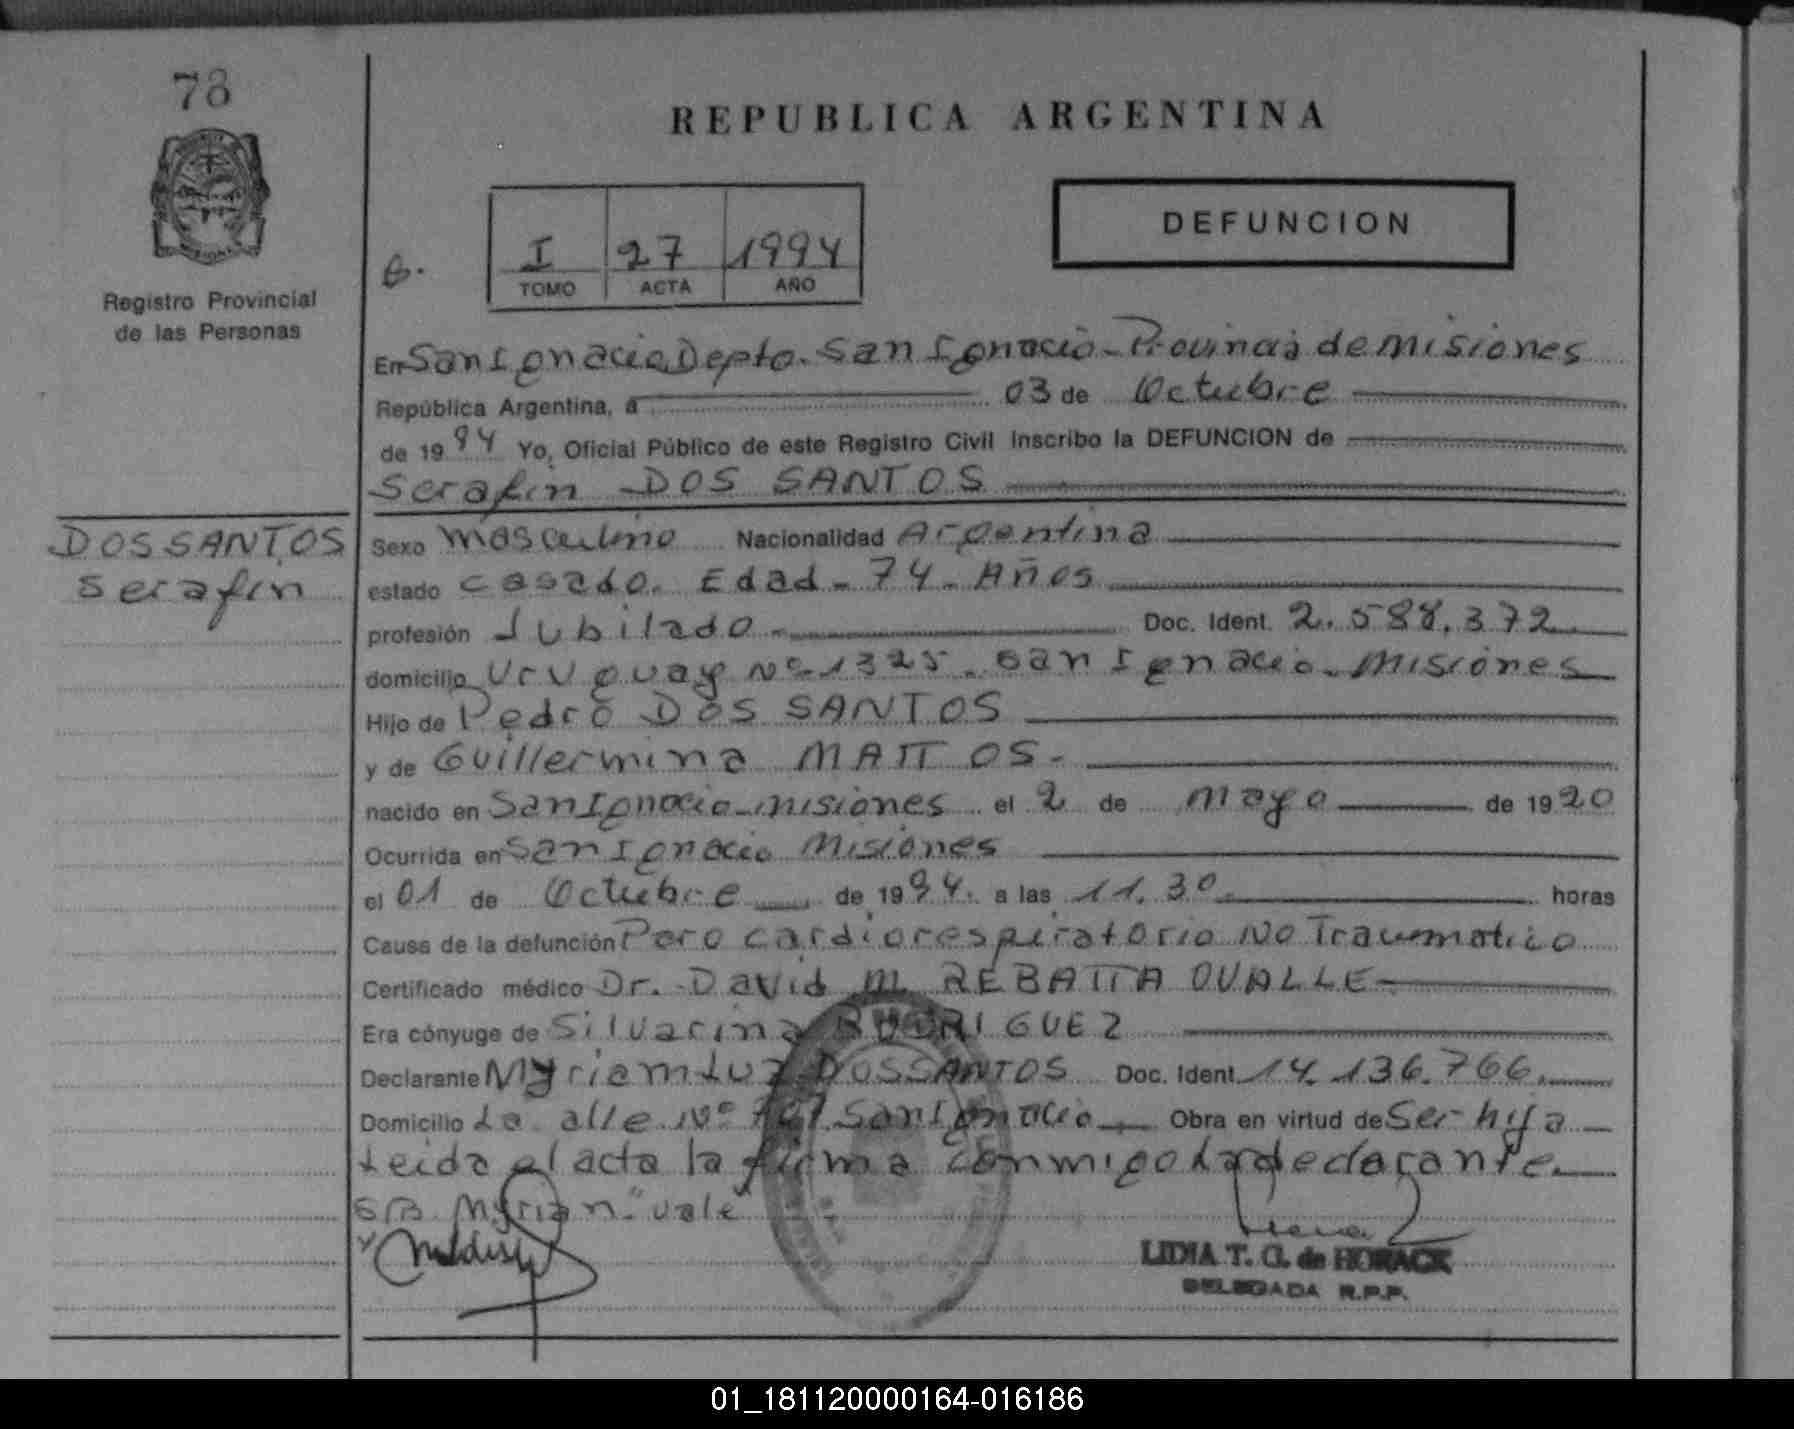 78
Registro Provincial
de las Personas
REPUBLICA ARGENTINA
DEFUNCION
I 27 1994
TOMO ACTA AÑO
En San Ignacio Depto. San Ignacio - Provincia de Misiones
República Argentina, a 03 de Octubre
de 1994 Yo, Oficial Público de este Registro Civil Inscribo la DEFUNCION de
Serafin DOS SANTOS
DOS SANTOS
Serafin
Sexo Masculino Nacionalidad Argentina
estado casado. Edad - 74 - Años
profesión Jubilado - Doc. Ident. 2.588.372
domicilio Uruguay Nº 1325 - San Ignacio - Misiones
Hijo de Pedro DOS SANTOS
y de Guillermina MATTOS -
nacido en San Ignacio - Misiones el 2 de Mayo de 1920
Ocurrida en San Ignacio Misiones
el 01 de Octubre de 1994. a las 11.30. horas
Causa de la defunción Paro cardiorespiratorio No Traumatico
Certificado médico Dr. David M. REBATTA OVALLE -
Era cónyuge de Silvarina RODRIGUEZ
Declarante Myriam Luz DOS SANTOS Doc. Ident. 14.136.766.
Domicilio La alle Nº San Ignacio - Obra en virtud de Ser hija
Leida el acta la firma conmigo La declarante.
S/B. Myrian "vale"
LIDIA T. G. de HORACK
DELEGADA R.P.P.
01_181120000164-016186